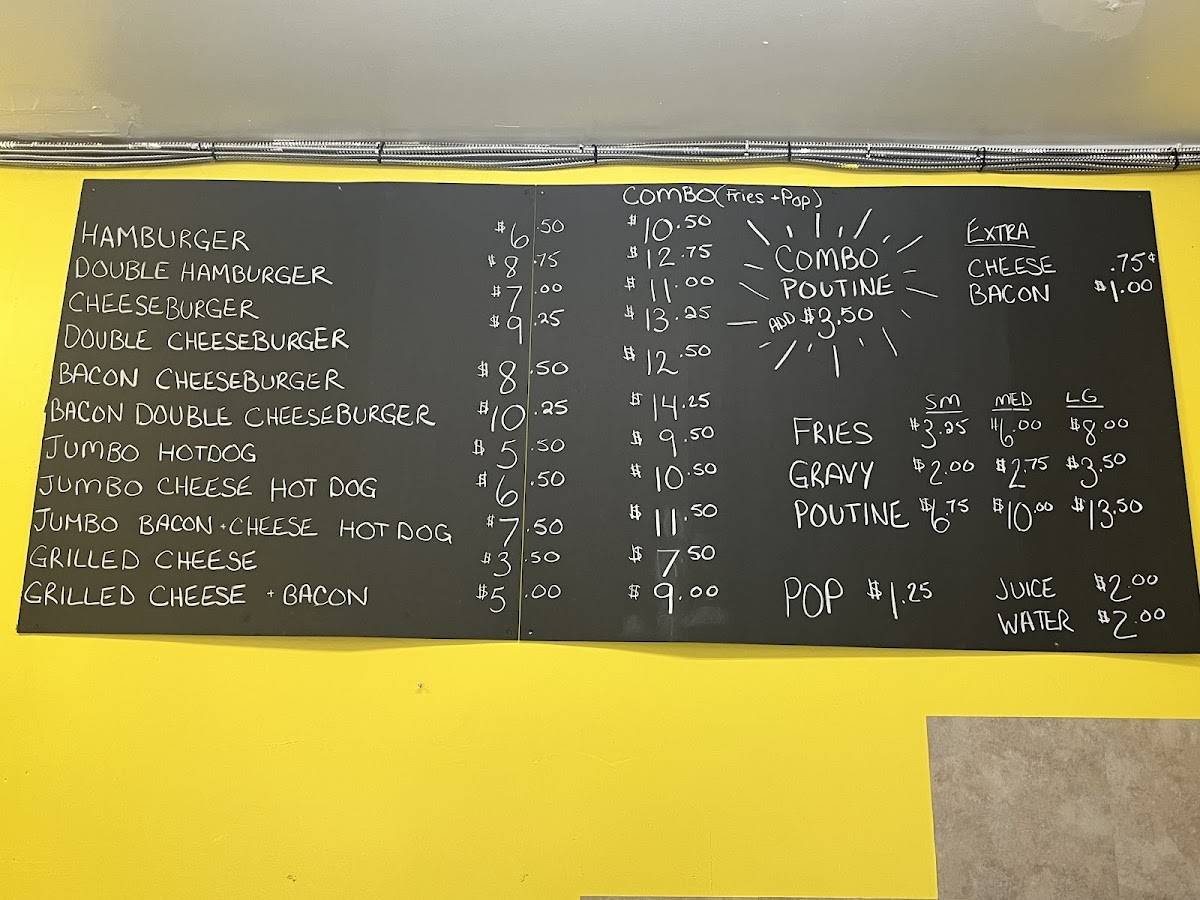 COMBO (Fries + Pop)
HAMBURGER $6.50 $10.50
DOUBLE HAMBURGER $8.75 $12.75
CHEESEBURGER $7.00 $11.00
DOUBLE CHEESEBURGER $9.25 $13.25
BACON CHEESEBURGER $8.50 $12.50
BACON DOUBLE CHEESEBURGER $10.25 $14.25
JUMBO HOTDOG $5.50 $9.50
JUMBO CHEESE HOT DOG $6.50 $10.50
JUMBO BACON + CHEESE HOT DOG $7.50 $11.50
GRILLED CHEESE $3.50 $7.50
GRILLED CHEESE + BACON $5.00 $9.00
COMBO
POUTINE
ADD $3.50
EXTRA
CHEESE .75¢
BACON $1.00
SM MED LG
FRIES $3.25 $6.00 $8.00
GRAVY $2.00 $2.75 $3.50
POUTINE $6.75 $10.00 $13.50
POP $1.25
JUICE $2.00
WATER $2.00